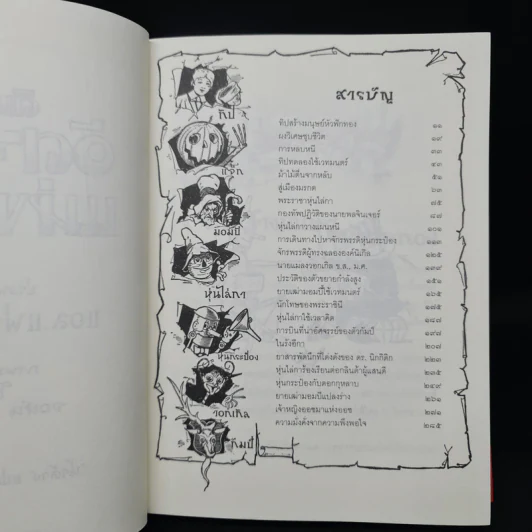 สารบัญ
ทิป
ทิปสร้างมนุษย์หัวฟักทอง ๑๑
ผงวิเศษชุบชีวิต ๑๙
การหลบหนี ๓๓
ทิปทดลองใช้เวทมนตร์ ๔๓
แจ็ก
ม้าไม้ตื่นจากหลับ ๕๑
สู่เมืองมรกต ๖๓
พระราชาหุ่นไล่กา ๗๕
กองทัพปฏิวัติของนายพลจินเจอร์ ๘๗
มอมบี้
หุ่นไล่กาวางแผนหนี ๑๐๑
การเดินทางไปหาจักรพรรดิหุ่นกระป๋อง ๑๑๓
จักรพรรดิผู้ทรงฉลององค์นิเกิล ๑๒๕
นายแมลงวอกเกิล ข.ส., ม.ศ. ๑๓๙
ประวัติของตัวขยายกำลังสูง ๑๕๑
หุ่นไล่กา
ยายเฒ่ามอมบี้ใช้เวทมนตร์ ๑๖๕
นักโทษของพระราชินี ๑๗๕
หุ่นไล่กาใช้เวลาคิด ๑๘๗
การบินที่น่าอัศจรรย์ของตัวกัมป์ ๑๙๗
ในรังอีกา ๒๐๗
หุ่นกระป๋อง
ยาสารพัดนึกที่โด่งดังของ ดร. นิกิดิก ๒๒๓
หุ่นไล่การ้องเรียนต่อกลินด้าผู้แสนดี ๒๓๕
หุ่นกระป๋องกับดอกกุหลาบ ๒๔๙
ยายเฒ่ามอมบี้แปลงร่าง
วอกเกิล
เจ้าหญิงออซมาแห่งออซ ๒๗๑
ความมั่งคั่งจากความพึงพอใจ ๒๘๕
กัมป์